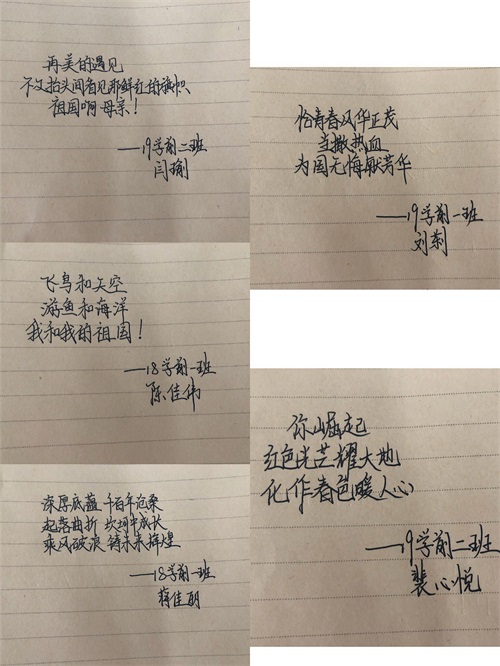 再美的遇见
不及抬头间看见那鲜红的旗帜
祖国啊母亲！
——19学前二班
闫瑜
飞鸟和天空
游鱼和海洋
我和我的祖国！
——18学前一班
陈佳伟
深厚底蕴 千百年沧桑
起落曲折 坎坷中成长
乘风破浪 铸未来辉煌
——18学前一班
蒋佳丽
恰青春风华正茂
当撒热血
为国无悔献芳华
——19学前一班
刘莉
你崛起
红色光芒耀大地
化作春色暖人心
——19学前二班
裴心悦